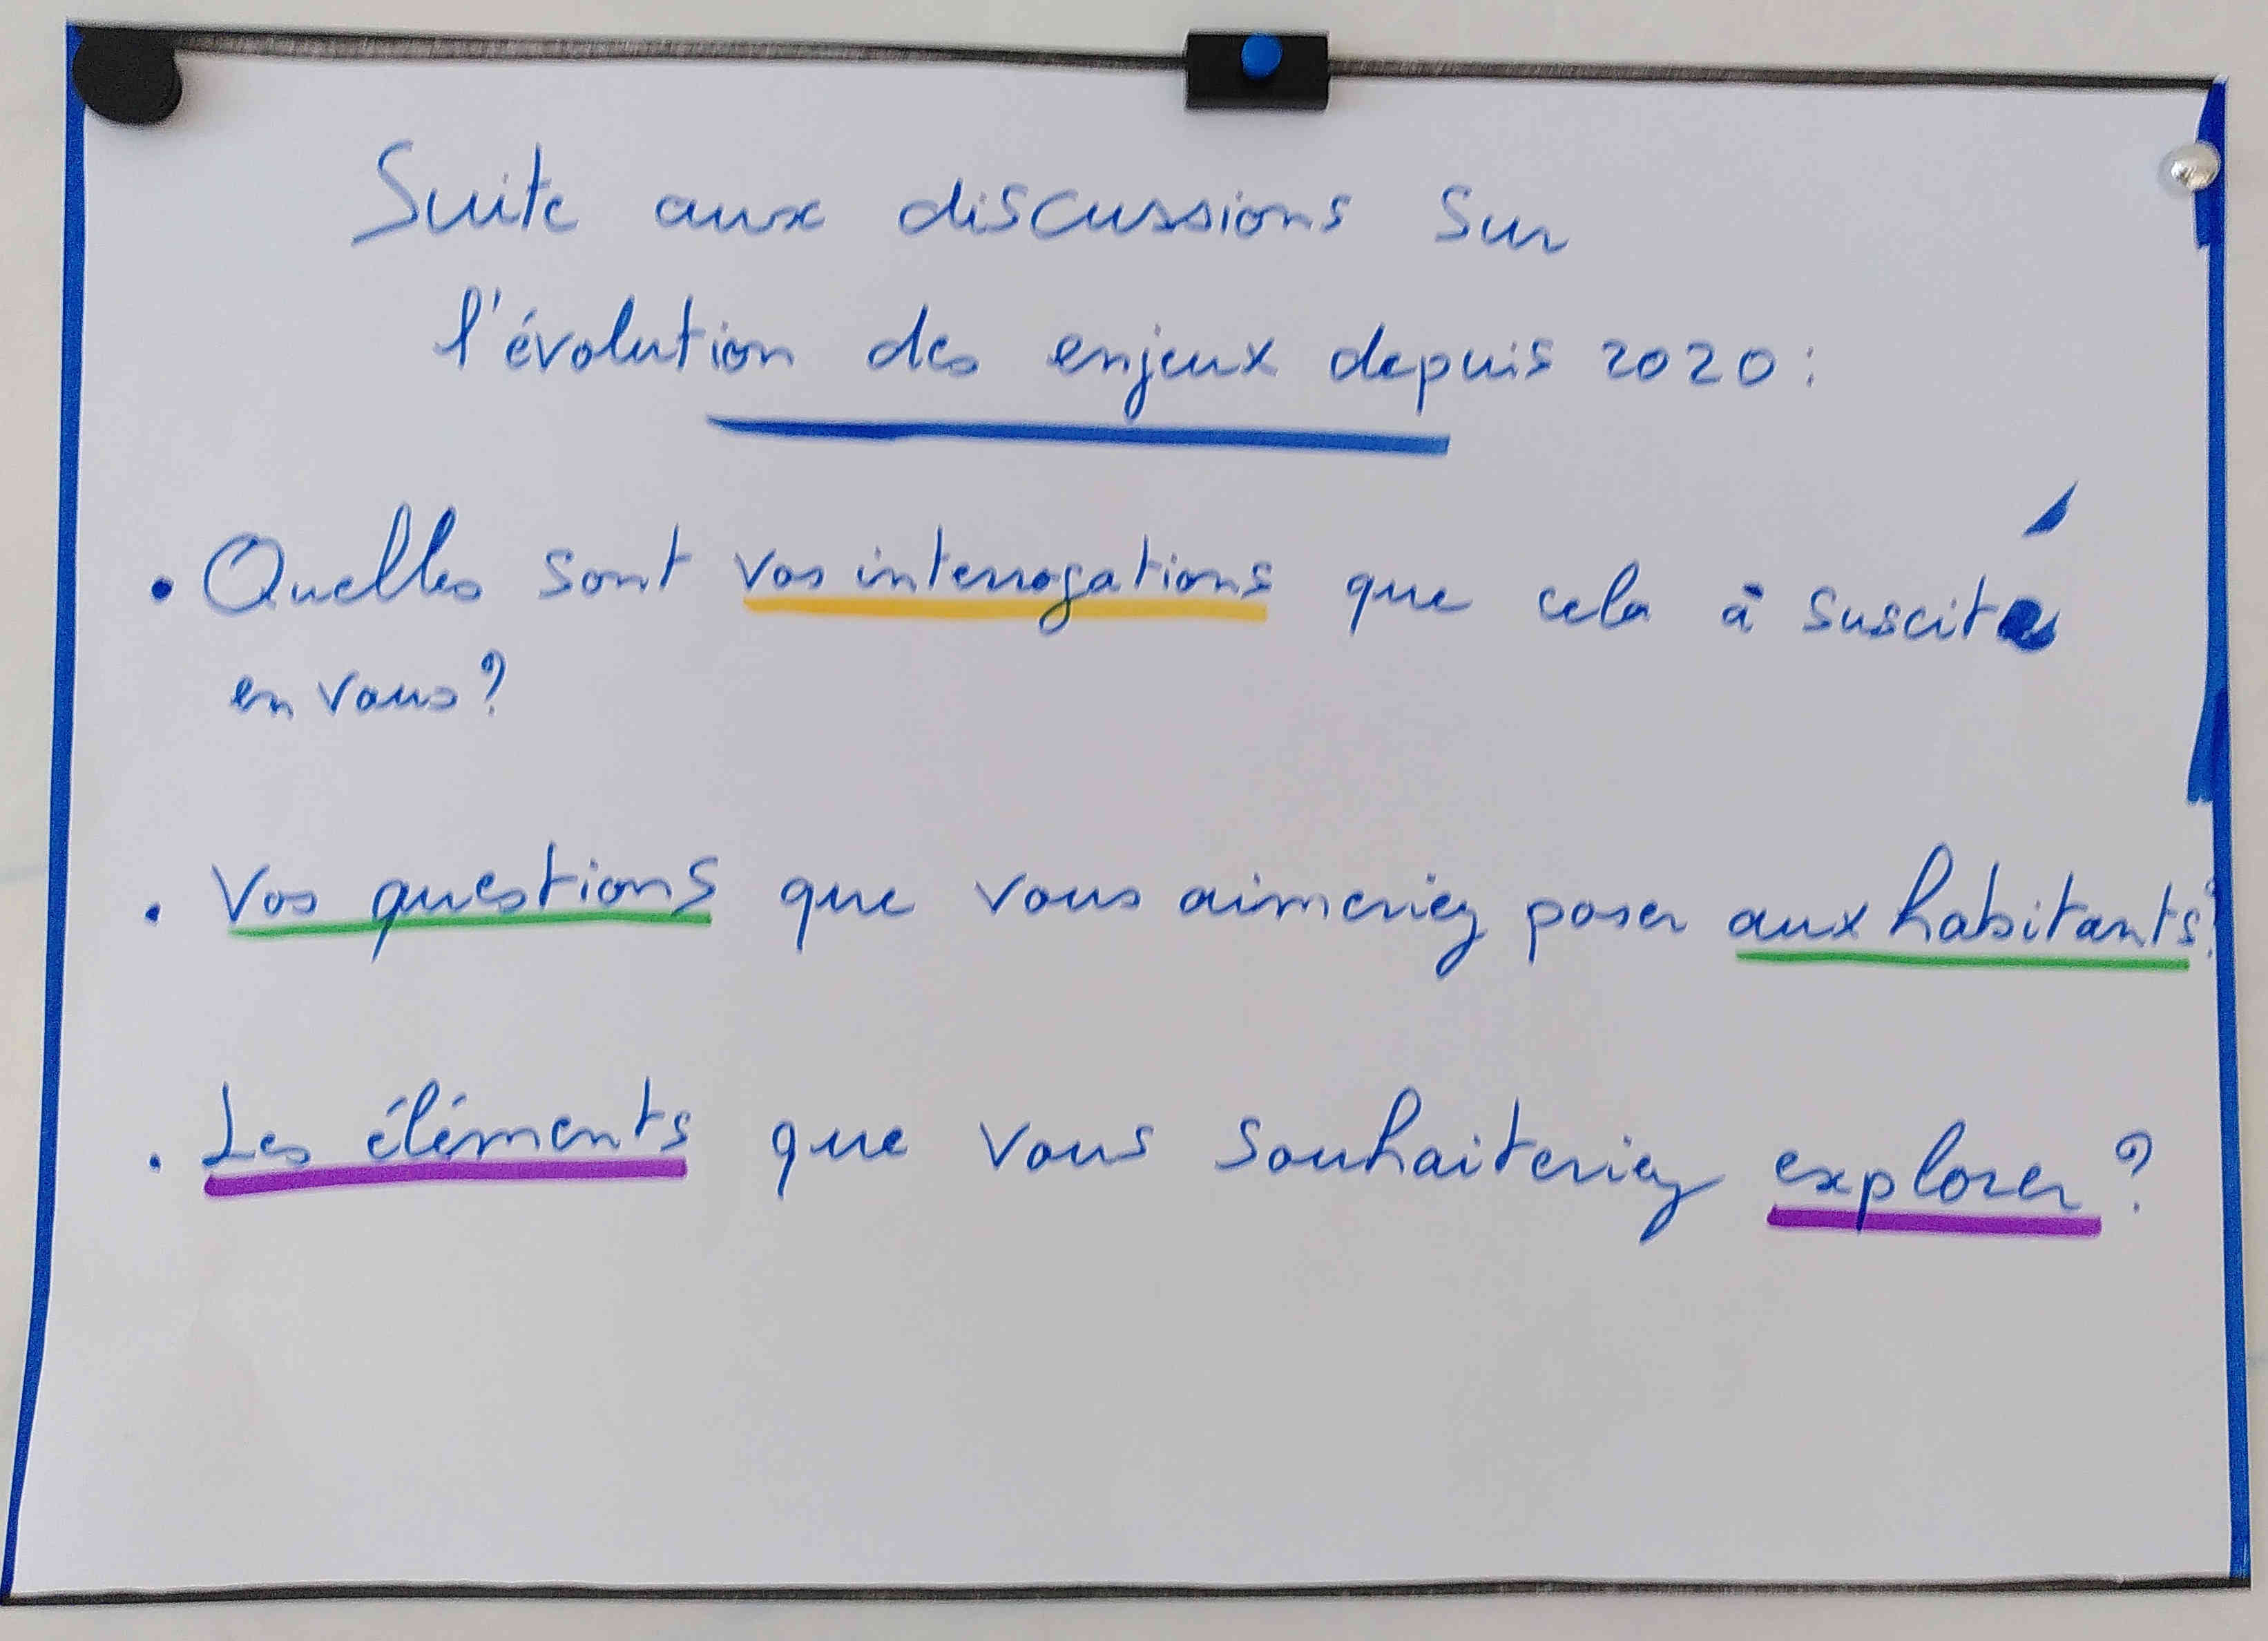 Suite aux discussions sur
l'évolution des enjeux depuis 2020:
• Quelles sont vos interrogations que cela à suscité
en vous?
• Vos questions que vous aimeriez poser aux habitants?
• Les éléments que vous souhaiteriez explorer?